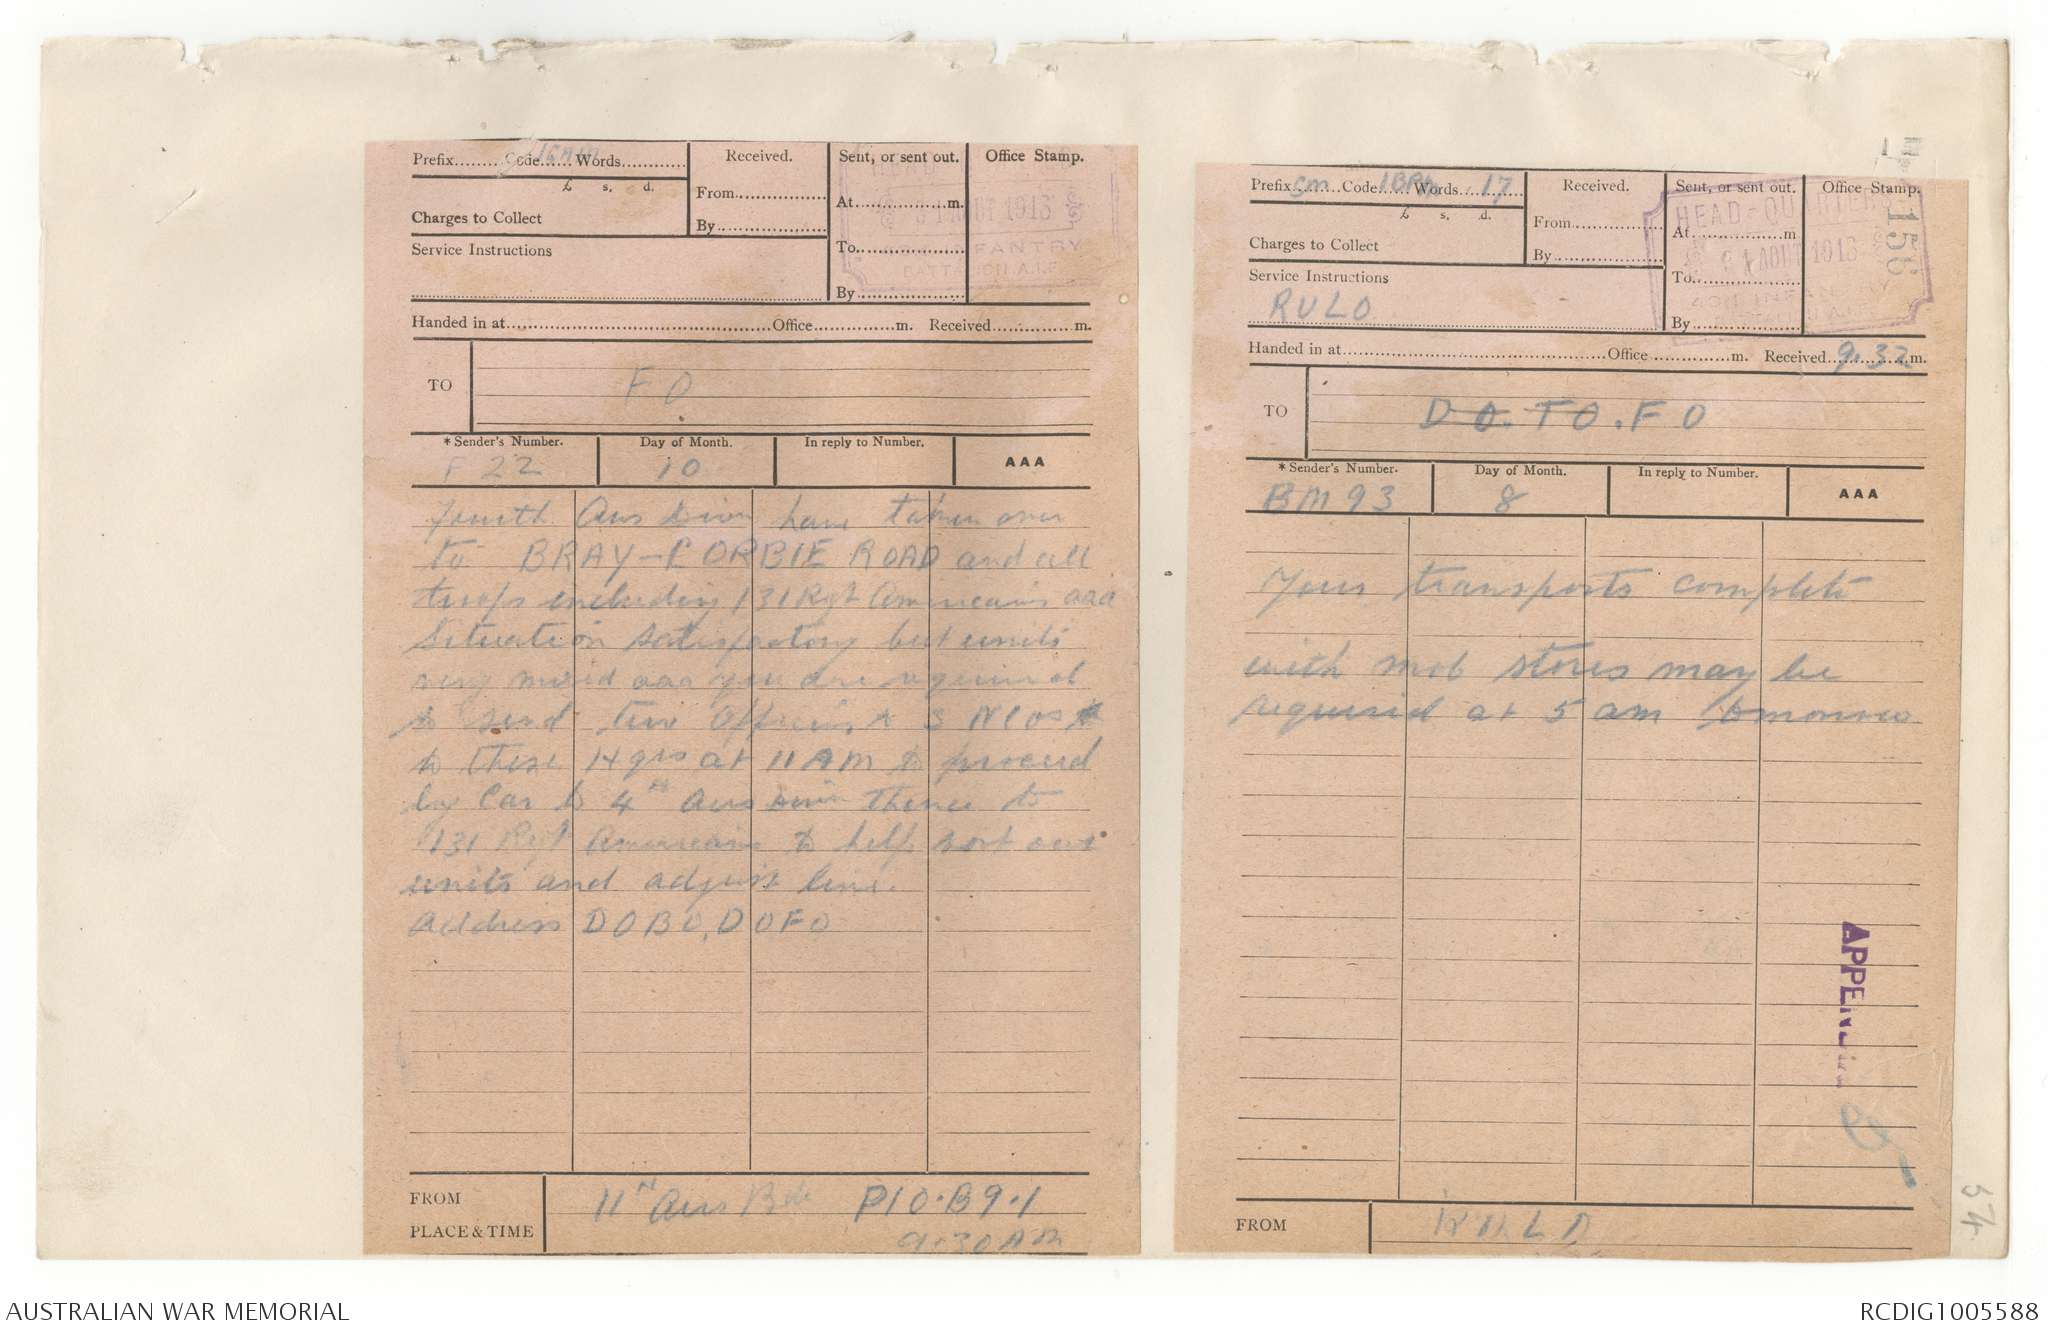 Prefix........ Code...... Words............
£ s. d.
Charges to Collect
Received.
From
By
Sent, or sent out.
At m.
To
By
Office Stamp.
31 AOUT 1918
INFANTRY
BATTALION A.I.F.
Service Instructions
Handed in at Office m. Received m.
TO
F O
* Sender's Number.
Day of Month.
In reply to Number.
AAA
F 22
10
Fourth Aus Divn have taken over
to BRAY-CORBIE ROAD and all
troops including 131 Rgt Americans aaa
Situation satisfactory but units
very mixed aaa you are required
to send two officers & 3 NCOs
to these Hqrs at 11 AM to proceed
by Car to 4th Aus Divn thence to
131 Regt Americans to help sort out
units and adjust line.
Address DOBO, DOFO
FROM
PLACE & TIME
11th Aus Bde P10.B9.1
9.30 AM
Prefix SM Code Words 17
£ s. d.
Charges to Collect
Received.
From
By
Sent, or sent out.
At m
To
By
Office Stamp.
HEAD-QUARTERS
31 AOUT 1918
INFANTRY
156
Service Instructions
RULO
Handed in at Office m. Received 9.32 m.
TO
DO. TO. FO
* Sender's Number.
Day of Month.
In reply to Number.
AAA
BM 93
8
Your transports complete
with mob stores may be
required at 5 am tomorrow
FROM
RULO
APPENDIX
54
AUSTRALIAN WAR MEMORIAL
RCDIG1005588